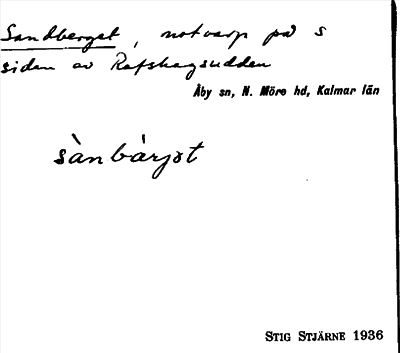 Sandberget, notvarp på s
sidan av Refshagsudden
Åby sn, N. Möre hd, Kalmar län
sànbàrjət
STIG STJÄRNE 1936